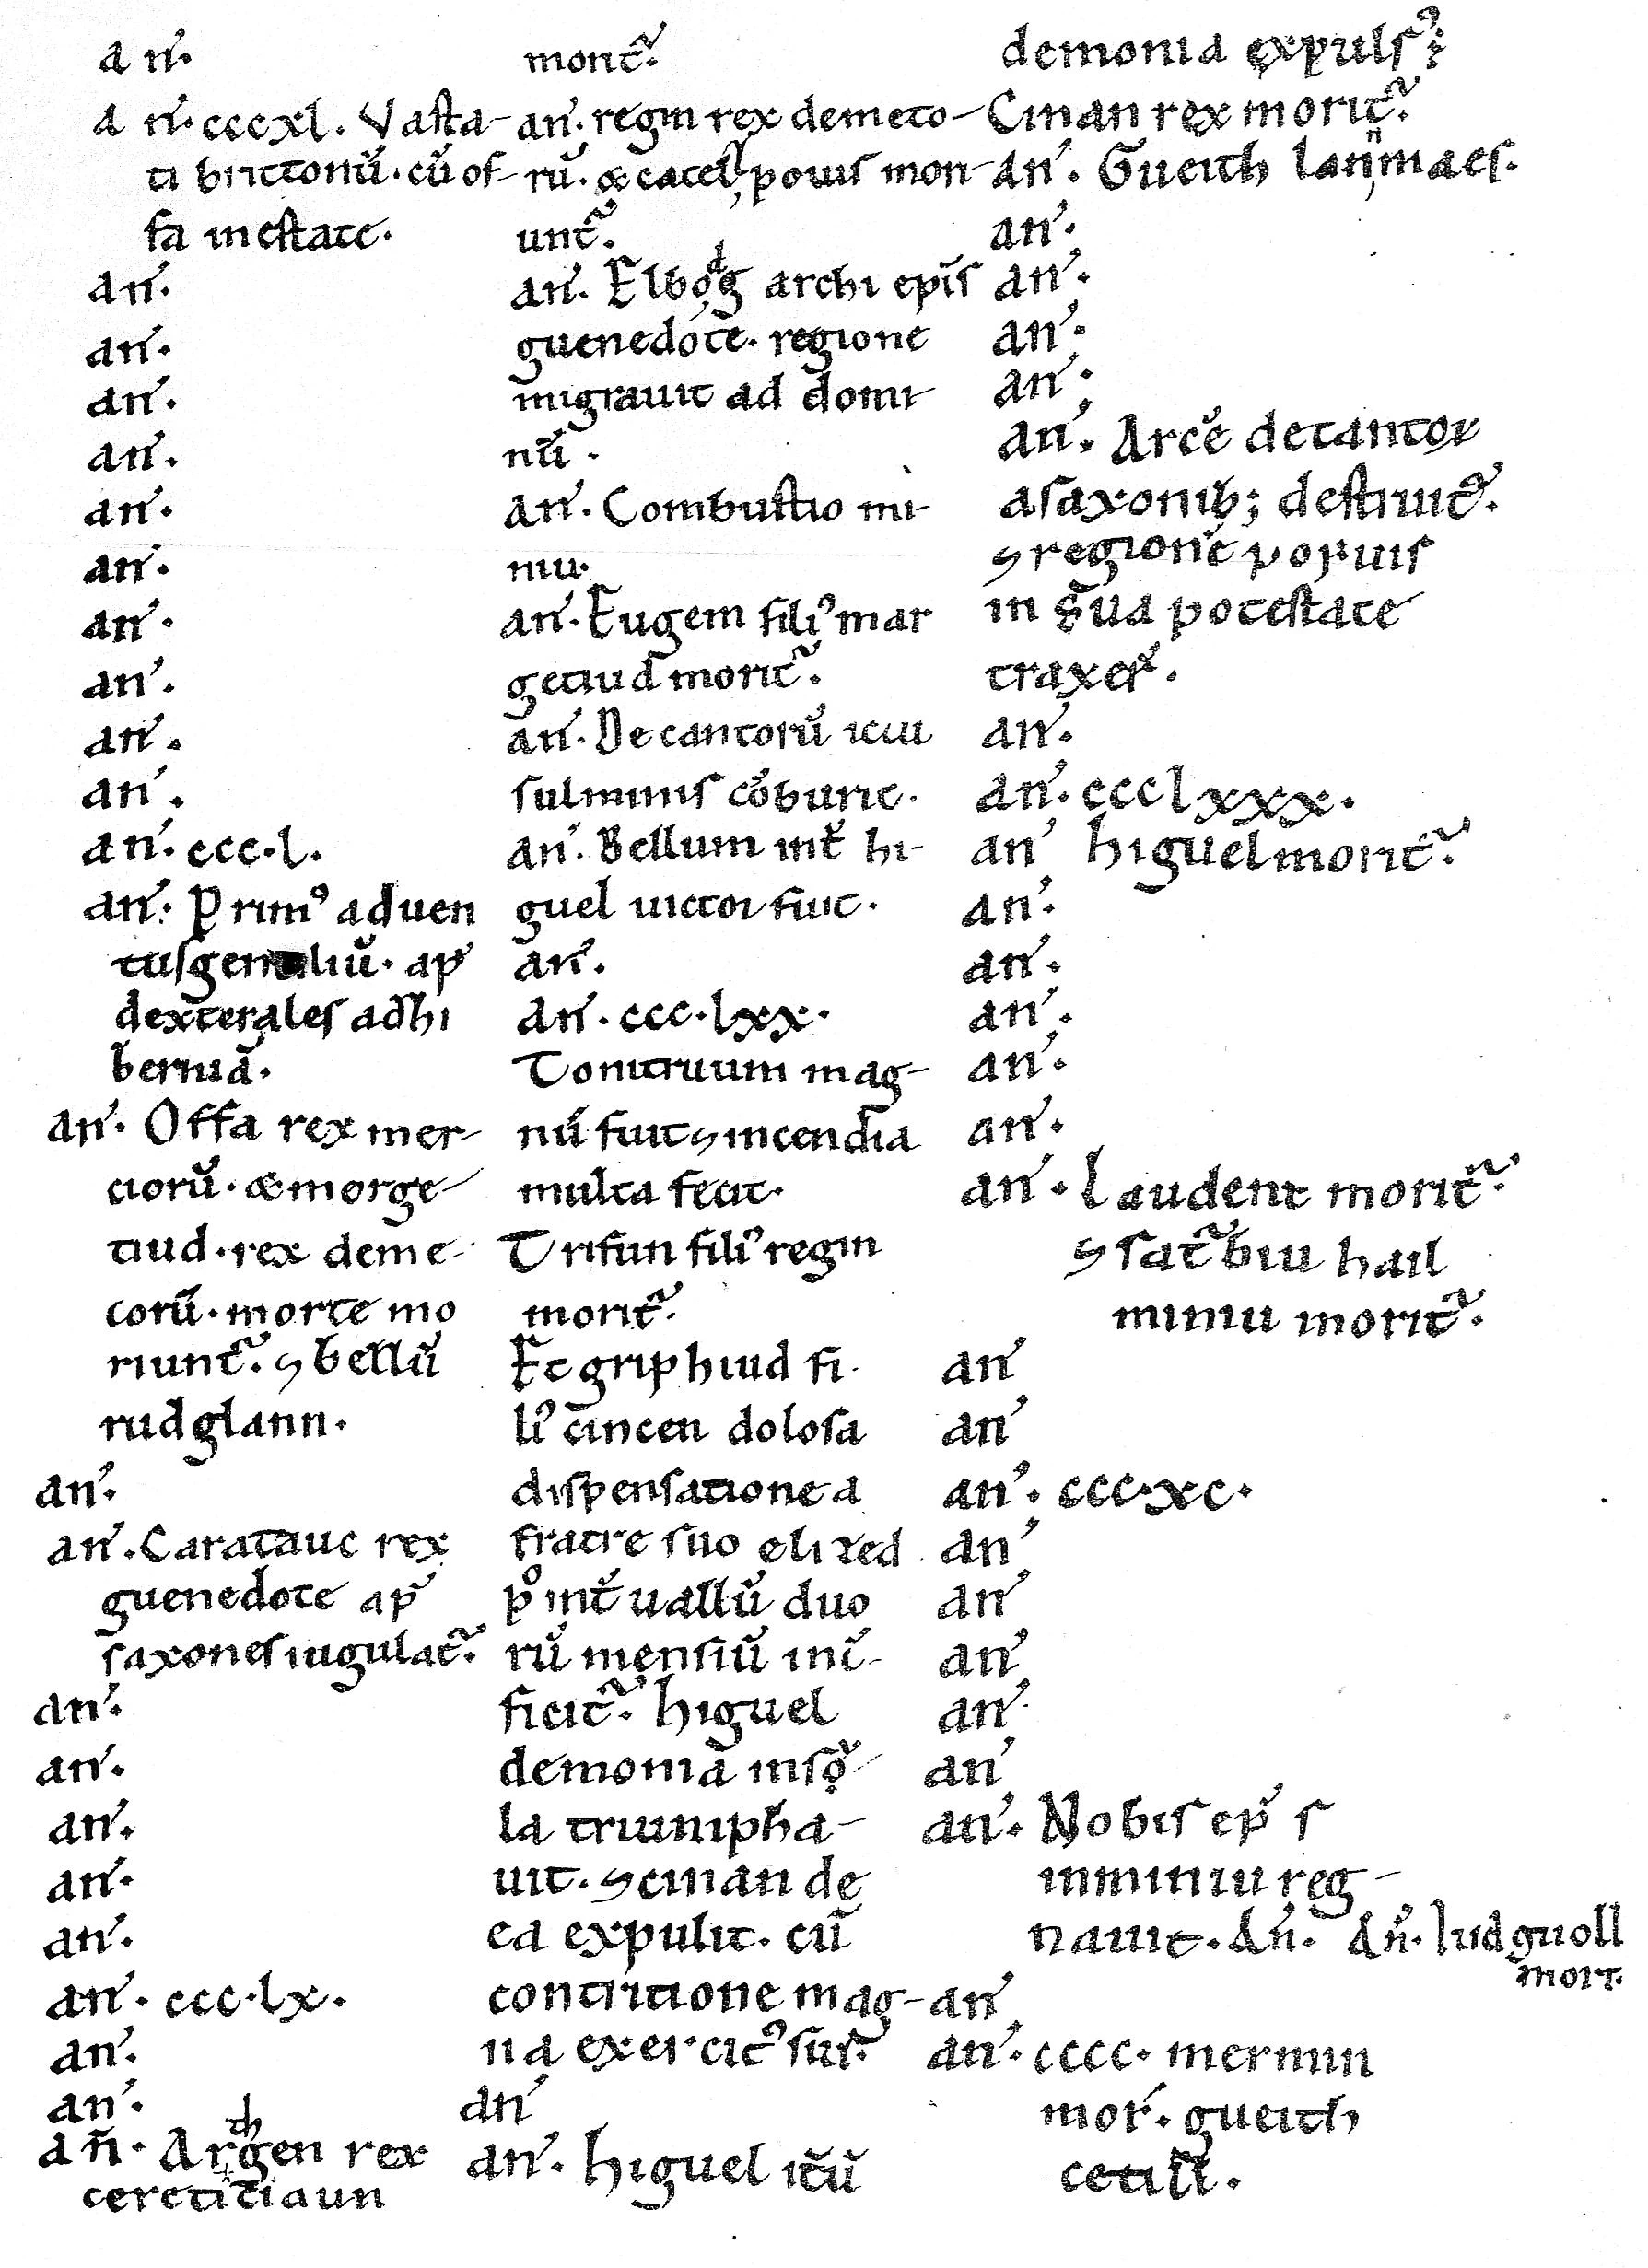 an̄.
an̄. cccxl. Vasta-
ti brittonū. cū of-
fa in estate.
an̄.
an̄.
an̄.
an̄.
an̄.
an̄.
an̄.
an̄.
an̄.
an̄.
an̄. ccc.l.
an̄. Primꝰ aduen
tus gentiliū. ap̄
dexterales ad hi
berniā.
an̄. Offa rex mer-
ciorū. & morge-
tiud. rex deme-
torū. morte mo
riunt᷑. ⁊ bellū
rudglann.
an̄.
an̄. Caratauc rex
guenedote ap̄
saxones iugulat᷑.
an̄.
an̄.
an̄.
an̄.
an̄.
an̄. ccc.lx.
an̄.
an̄.
an̄. Arthgen rex
cereticiaun
morit᷑.
an̄. regin rex demeto-
rū. & catell povis mori-
unt᷑.
an̄. Elbodg archi epis̄
guenedote. regione
migrauit ad domi-
nū.
an̄. Combustio mi-
niu.
an̄. Eugem filiꝰ mar
getiud morit᷑.
an̄. Decantorū ictu
fulminis cōburit.
an̄. Bellum int̄ hi-
guel uictor fuit.
an̄.
an̄. ccc.lxx.
Tonitruum mag-
nū fuit ⁊ incendia
multa fecit.
Trifun filiꝰ regin
morit᷑.
Et griphiud fi-
liꝰ cincen dolosa
dispensatione a
fratre suo elized
p̄ int̄uallū duo
rū mensiū int̄-
ficit᷑. higuel
demonia inso᷑-
la triumpha-
uit. ⁊ cinan de
ea expulit. cū
contritione mag-
na exercitꝰ sui.
an̄
an̄. higuel it̄ū
demonia expulsꝰ;
Cinan rex morit᷑.
an̄. Gueith lannmaes.
an̄.
an̄.
an̄.
an̄.
an̄. Arcē decantor
a saxonib; destruit᷑.
⁊ regionē poyuis
in sua potestate
traxer̄.
an̄.
an̄. ccclxxx.
an̄ higuel morit᷑.
an̄.
an̄.
an̄.
an̄.
an̄.
an̄. laudent morit᷑.
⁊ sat᷑biu hail
miniu morit᷑.
an̄
an̄
an̄. ccc.xc.
an̄
an̄
an̄
an̄
an̄
an̄. Nobis ep̄ s
in miniu reg-
nauit. An̄. An̄. Iudguoll
mort̄.
an̄
an̄. cccc. mermin
mor̄. gueith
cetill.